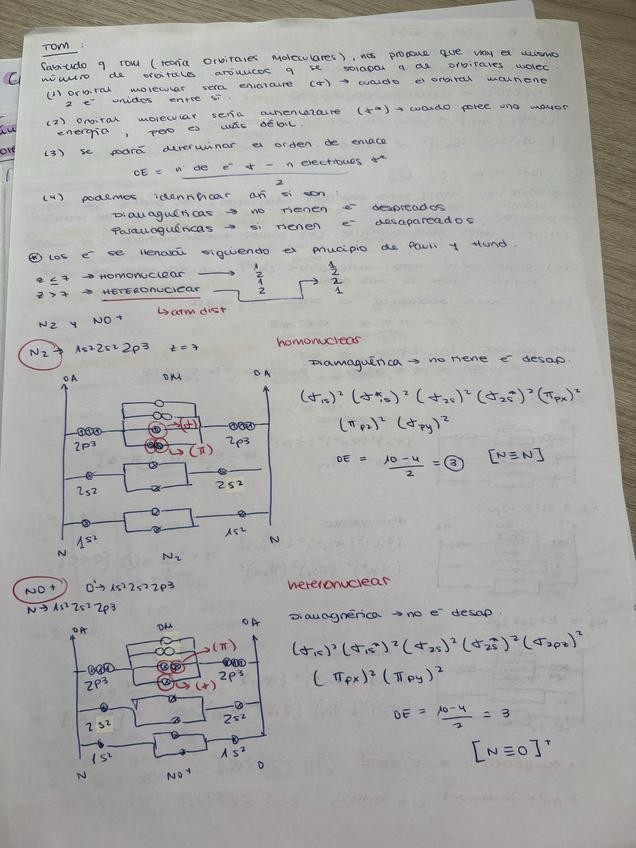 TOM :
Sabiendo q TOM (teoría Orbitales Moleculares), nos propone que hay el mismo
número de orbitales atómicos q se solapan a de orbitales molec.
(1) orbital molecular será enlazante (σ) → cuando el orbital mantiene
2 e⁻ unidos entre si.
(2) orbital molecular sería antienlazante (σ*) → cuando posee una mayor
energía, pero es más débil.
(3) se podrá determinar el orden de enlace
OE = nº de e⁻ σ - n electrones σ*
2
(4) podemos identificar así si son:
Diamagnéticas → no tienen e⁻ despareados
Paramagnéticas → si tienen e⁻ desapareados
⊛ Los e⁻ se llenará siguiendo el principio de Pauli y Hund.
z ≤ 7 → HOMONUCLEAR → 1 2 1 2
z > 7 → HETERONUCLEAR → 1 2 2 1
↳ atm dist
N2 y NO+
N2 → 1s² 2s² 2p3 z = 7
homonuclear
Diamagnética → no tiene e⁻ desap.
OA OM OA
(σ1s)² (σ*1s)² (σ2s)² (σ2s*)² (πpx)²
(πpz)² (σpy)²
→ (σ)
→ (π)
2p3 2p3
OE = 10-4 / 2 = ③ [N≡N]
2s² 2s²
1s² 1s²
N N2 N
NO+ O⁺→ 1s² 2s² 2p3
N → 1s² 2s² 2p3
heteronuclear
Diamagnética → no e⁻ desap.
OA OM OA
(σ1s)² (σ1s*)² (σ2s)² (σ2s*)² (σ2pz)²
(πpx)² (πpy)²
→ (π)
→ (σ)
2p3 2p3
OE = 10-4 / 2 = 3
2s² 2s²
[N≡O]⁺
1s² 1s²
N NO+ O